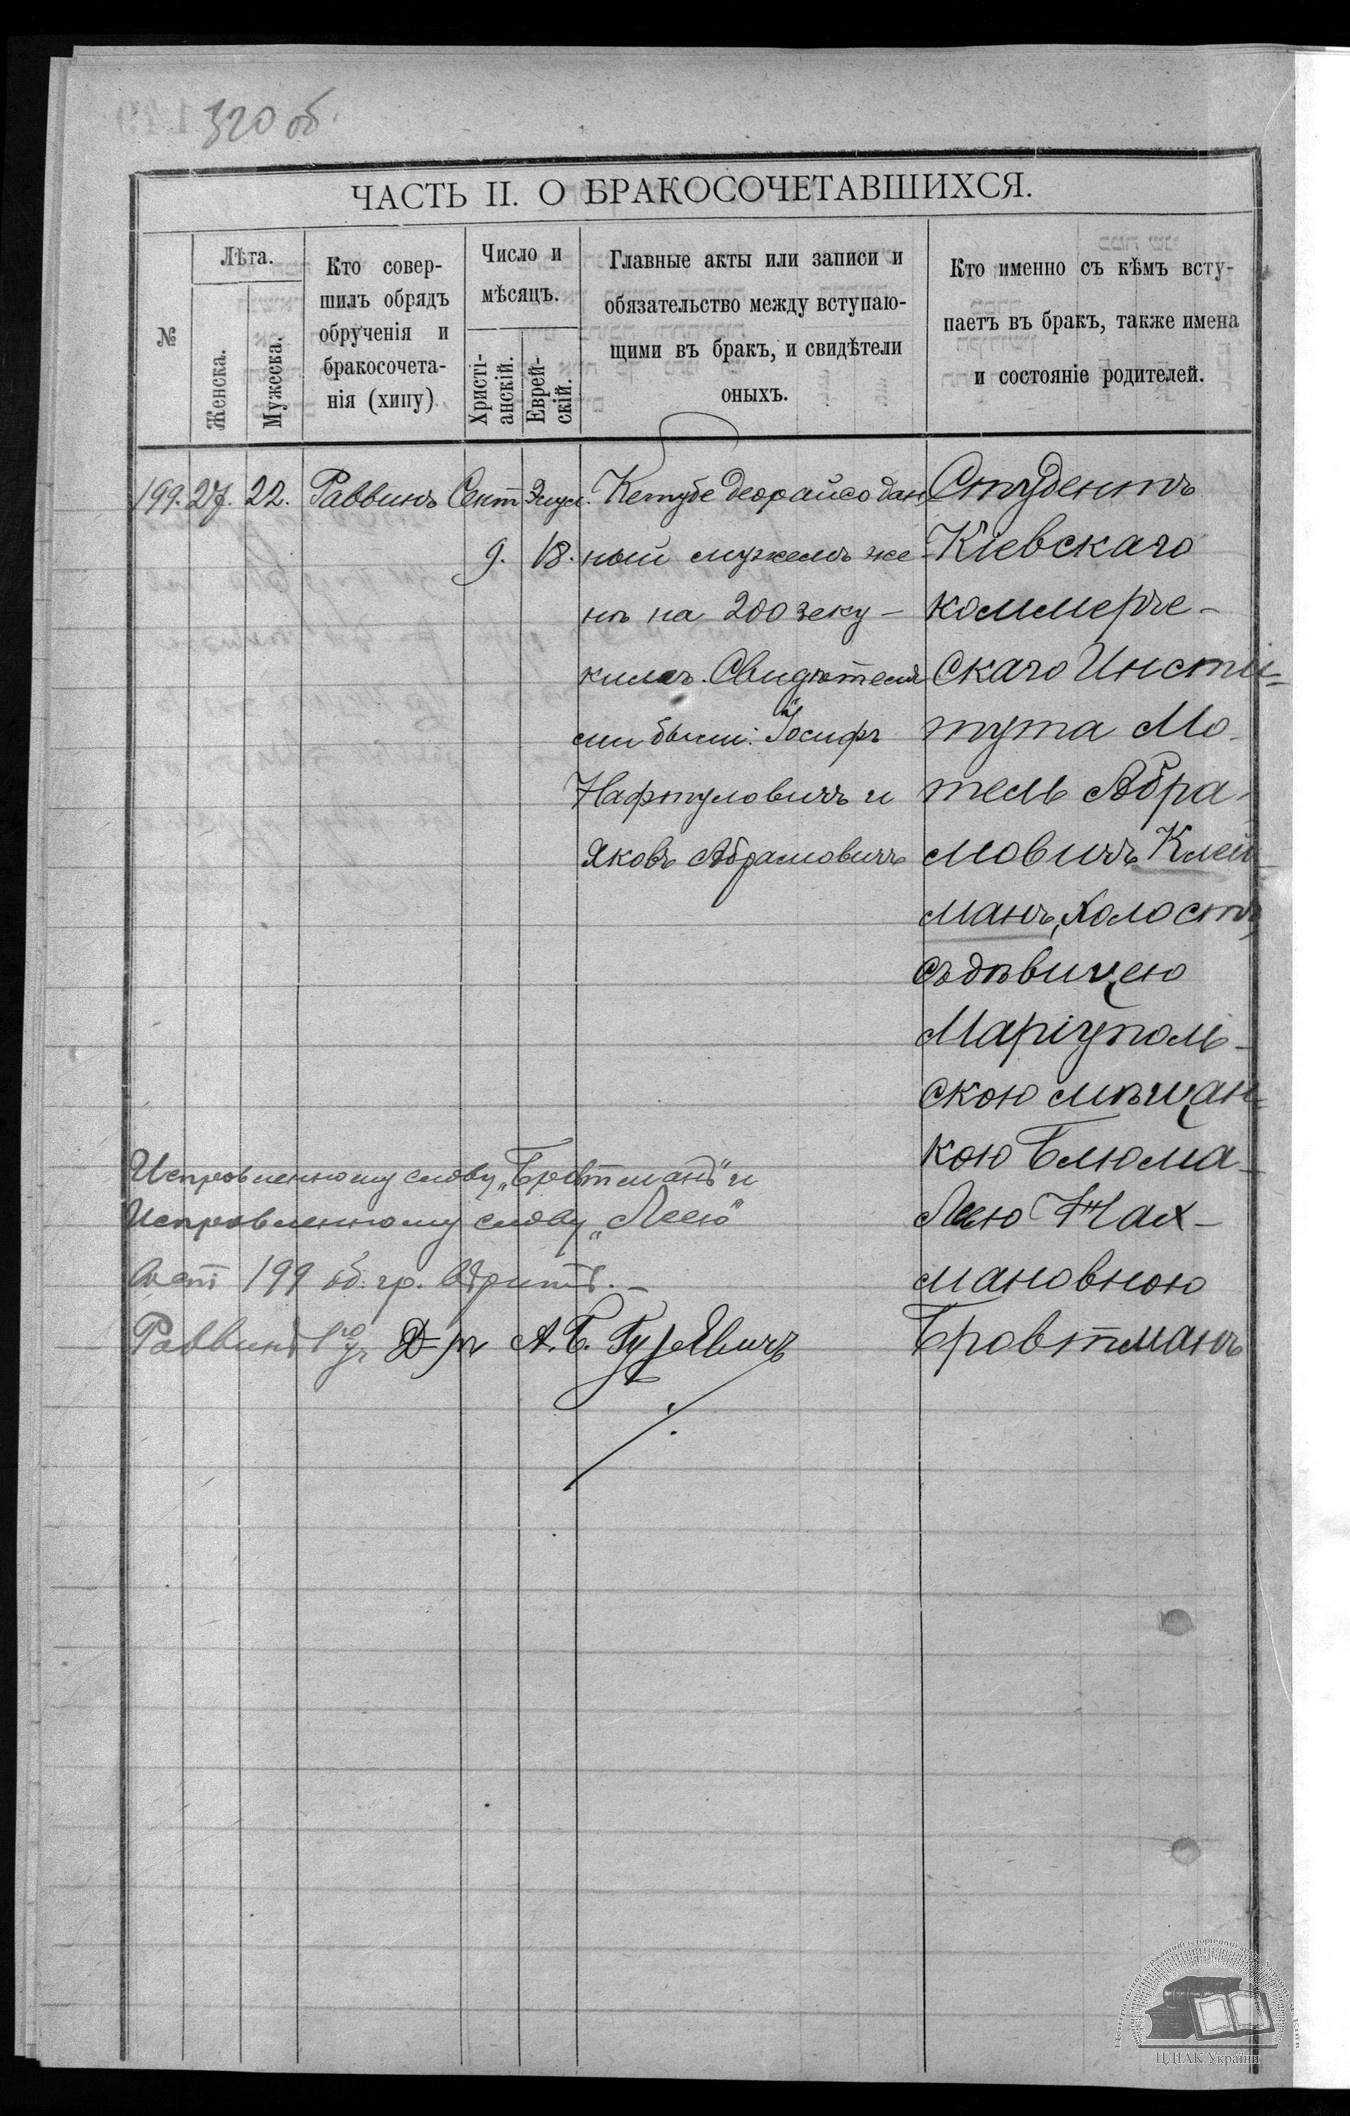 320 об.
ЧАСТЬ II. О БРАКОСОЧЕТАВШИХСЯ.
№
Лѣта.
Женска.
Мужеска.
Кто совер-
шилъ обрядъ
обрученія и
бракосочета-
нія (хипу)
Число и
мѣсяцъ.
Христі-
анскій.
Еврей-
скій.
Главные акты или записи и
обязательство между вступаю-
щими въ бракъ, и свидѣтели
оныхъ.
Кто именно съ кѣмъ всту-
паетъ въ бракъ, также имена
и состояніе родителей.
199. 27. 22. Раввинъ Сент Элул.
9. 18.
Кетубе деорайсо дан
ный мужемъ же-
нѣ на 200 зеку-
кимъ. Свидѣтеля
ми были: Іосифъ
Нафтуловичъ и
Яковъ Абрамовичъ
Студентъ
Кіевскаго
коммерче-
скаго Инсти-
тута Мо-
тель Абра-
мовичъ Клей
манъ, холостъ,
съ дѣвицею
Маріуполь-
скою мѣщан-
кою Блюма-
Леею Нах-
мановною
Бровтманъ
Исправленному слову „Бровтманъ" и
Исправленному слову „Леею"
акт 199 об. гр. вѣрить.
Раввинъ Д-ръ А. Б. Гуревичъ
ЦДІАК України